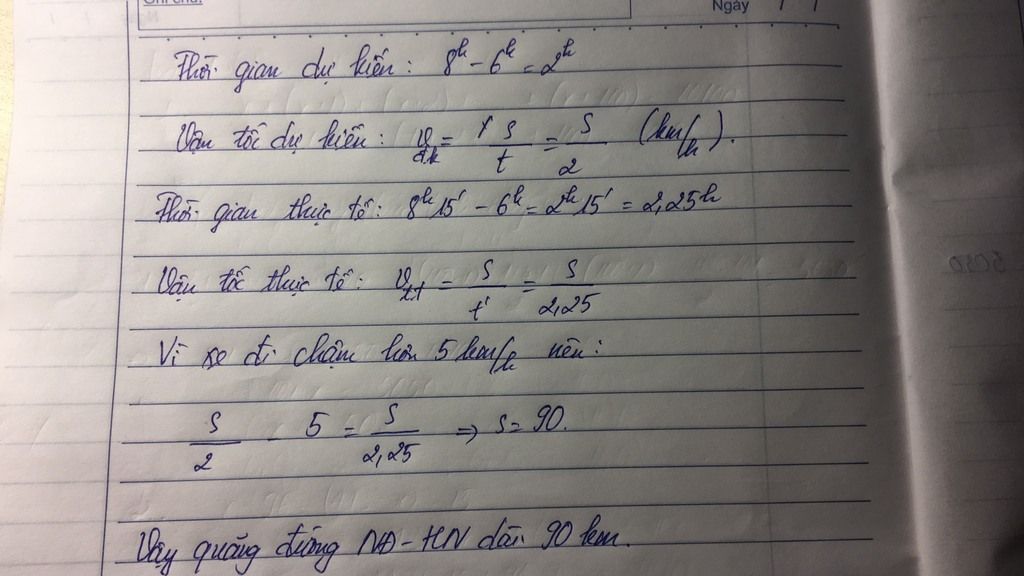 Ghi chú:
Ngày / /
Thời gian dự kiến: 8h - 6h = 2h
Vận tốc dự kiến: vdk = S/t = S/2 (km/h).
Thời gian thực tế: 8h15' - 6h = 2h15' = 2,25h
Vận tốc thực tế: vtt = S/t' = S/2,25
Vì xe đi chậm hơn 5km/h nên:
S/2 - 5 = S/2,25 => S = 90.
Vậy quãng đường NĐ-HN dài 90 km.